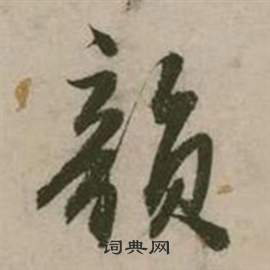 韻
词典网